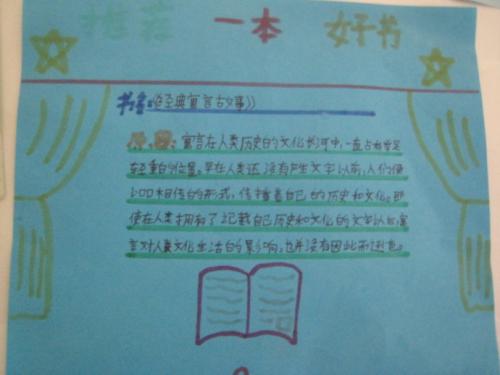 推荐 一本 好书
书名:《经典寓言故事》
寓言在人类历史的文化长河中,一直占有举足
轻重的位置。早在人类还没有产生文字以前,人们便
以口口相传的形式,传播着自己的历史和文化。即
使在人类拥有了记载自己历史和文化的文字以后,寓
言对人类文化生活的影响,也并没有因此而逊色。